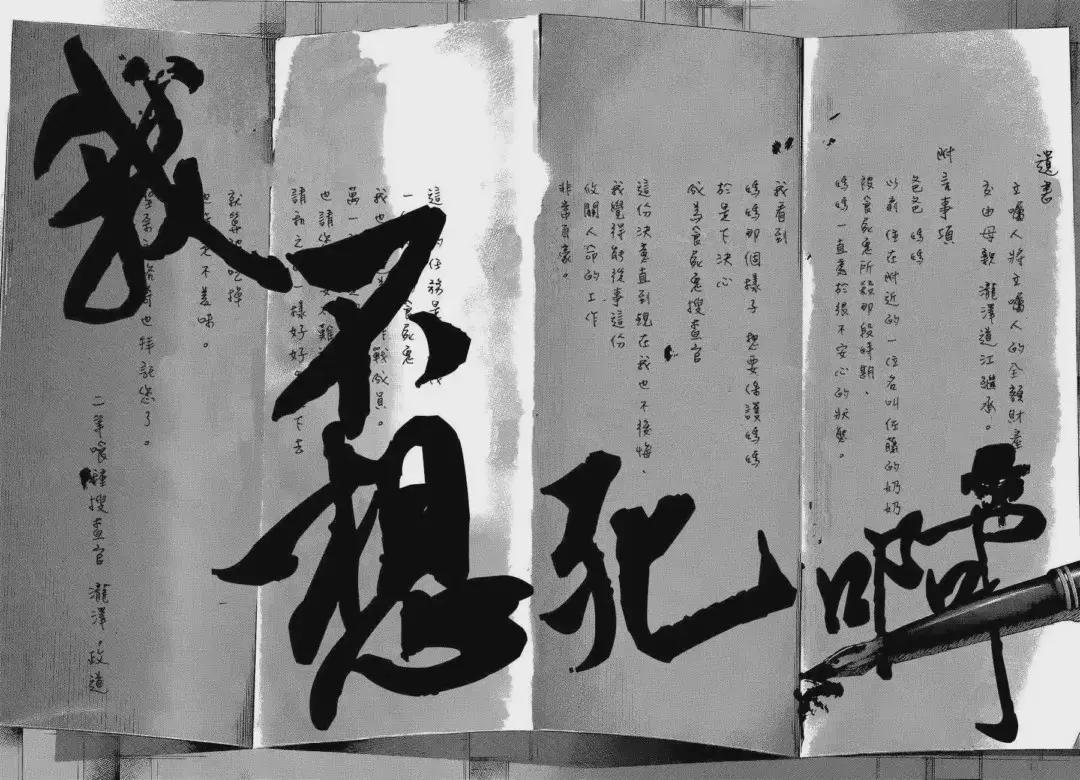 遺書
立囑人將立囑人的全額財產
交由母親 瀧澤道江繼承。
附言事項
爸爸 媽媽
以前住在附近的一位名叫佐藤的奶奶
被食屍鬼所殺那段時期、
媽媽一直處於很不安心的狀態。
我看到
媽媽那個樣子 想要保護媽媽
於是下決心
成為食屍鬼搜查官
這份決意直到現在我也不後悔、
我覺得能從事這份
攸關人命的工作
非常自豪。
這 的任務是
一 食屍鬼
我也 作戰成員。
萬一
也請您 難
請和之 一樣好好 下去
就算 吃掉
也 不美味。
也拜託您了。
二等喰種搜查官 瀧澤 政道
我不想死